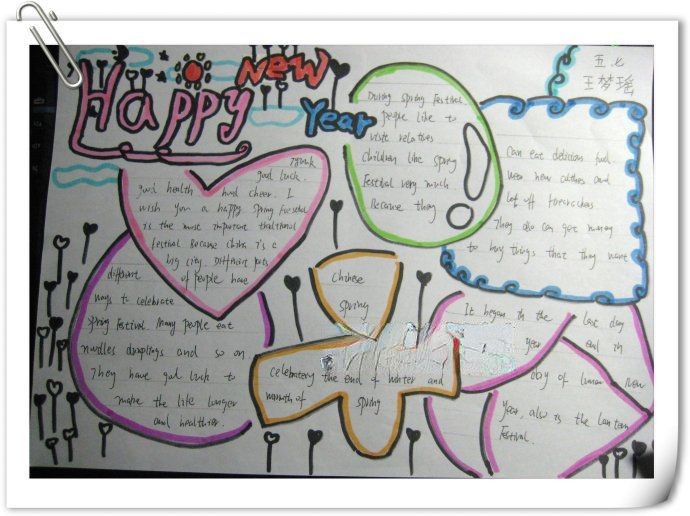 Happy New Year
五.七
王梦瑶
I think
good luck.
good health and cheer. I
wish you a happy Spring Festival
is the most important traditional
festival Because China is a
big city. Different parts
of people have
different
ways to celebrate
Spring Festival. Many people eat
nuddles dumplings and so on
They have good luck to
make the life longer
and healthier.
During Spring Festival.
people like to
visit relatives
children like Spring
Festival very much
Because they
can eat delicious food
wea new cuthes and
let off firecrackers
They also can get money
to buy things that they want
Chinese
Spring
celebratery the end of winter and
warmth of spring
It began th the last day
year end 1n
day of lunar New
Year. also is the lantern
Festival.